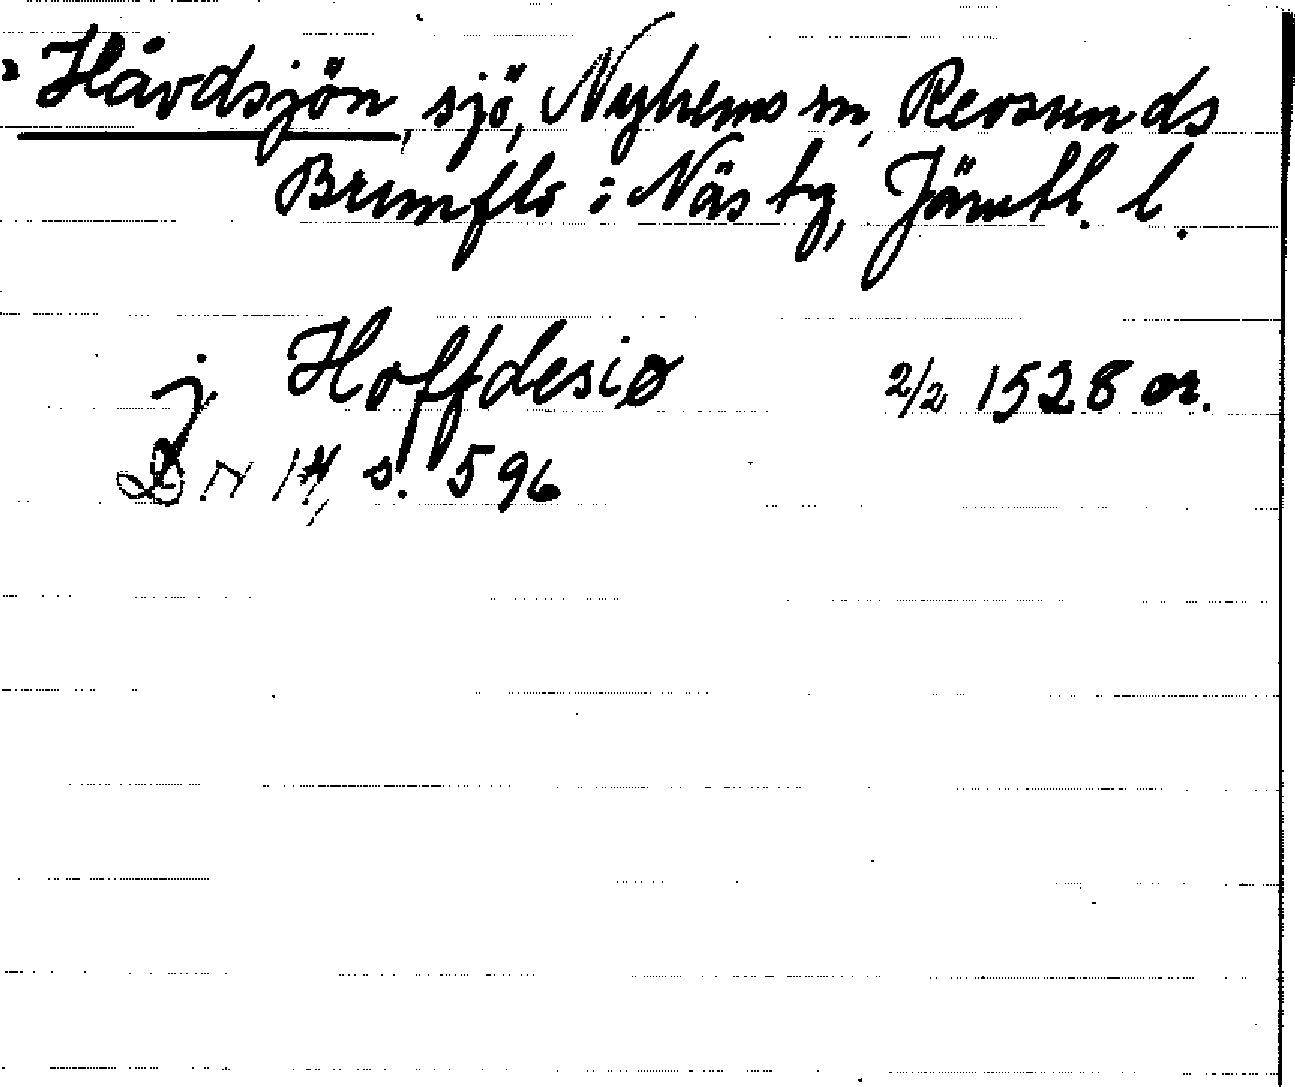 Håvdsjön, sjö, Nyhems sn, Revsunds
Brunflo i Näs tg, Jämtl. l.
j Hoffdesiø 2/2 1528 or.
DN 14, s. 596